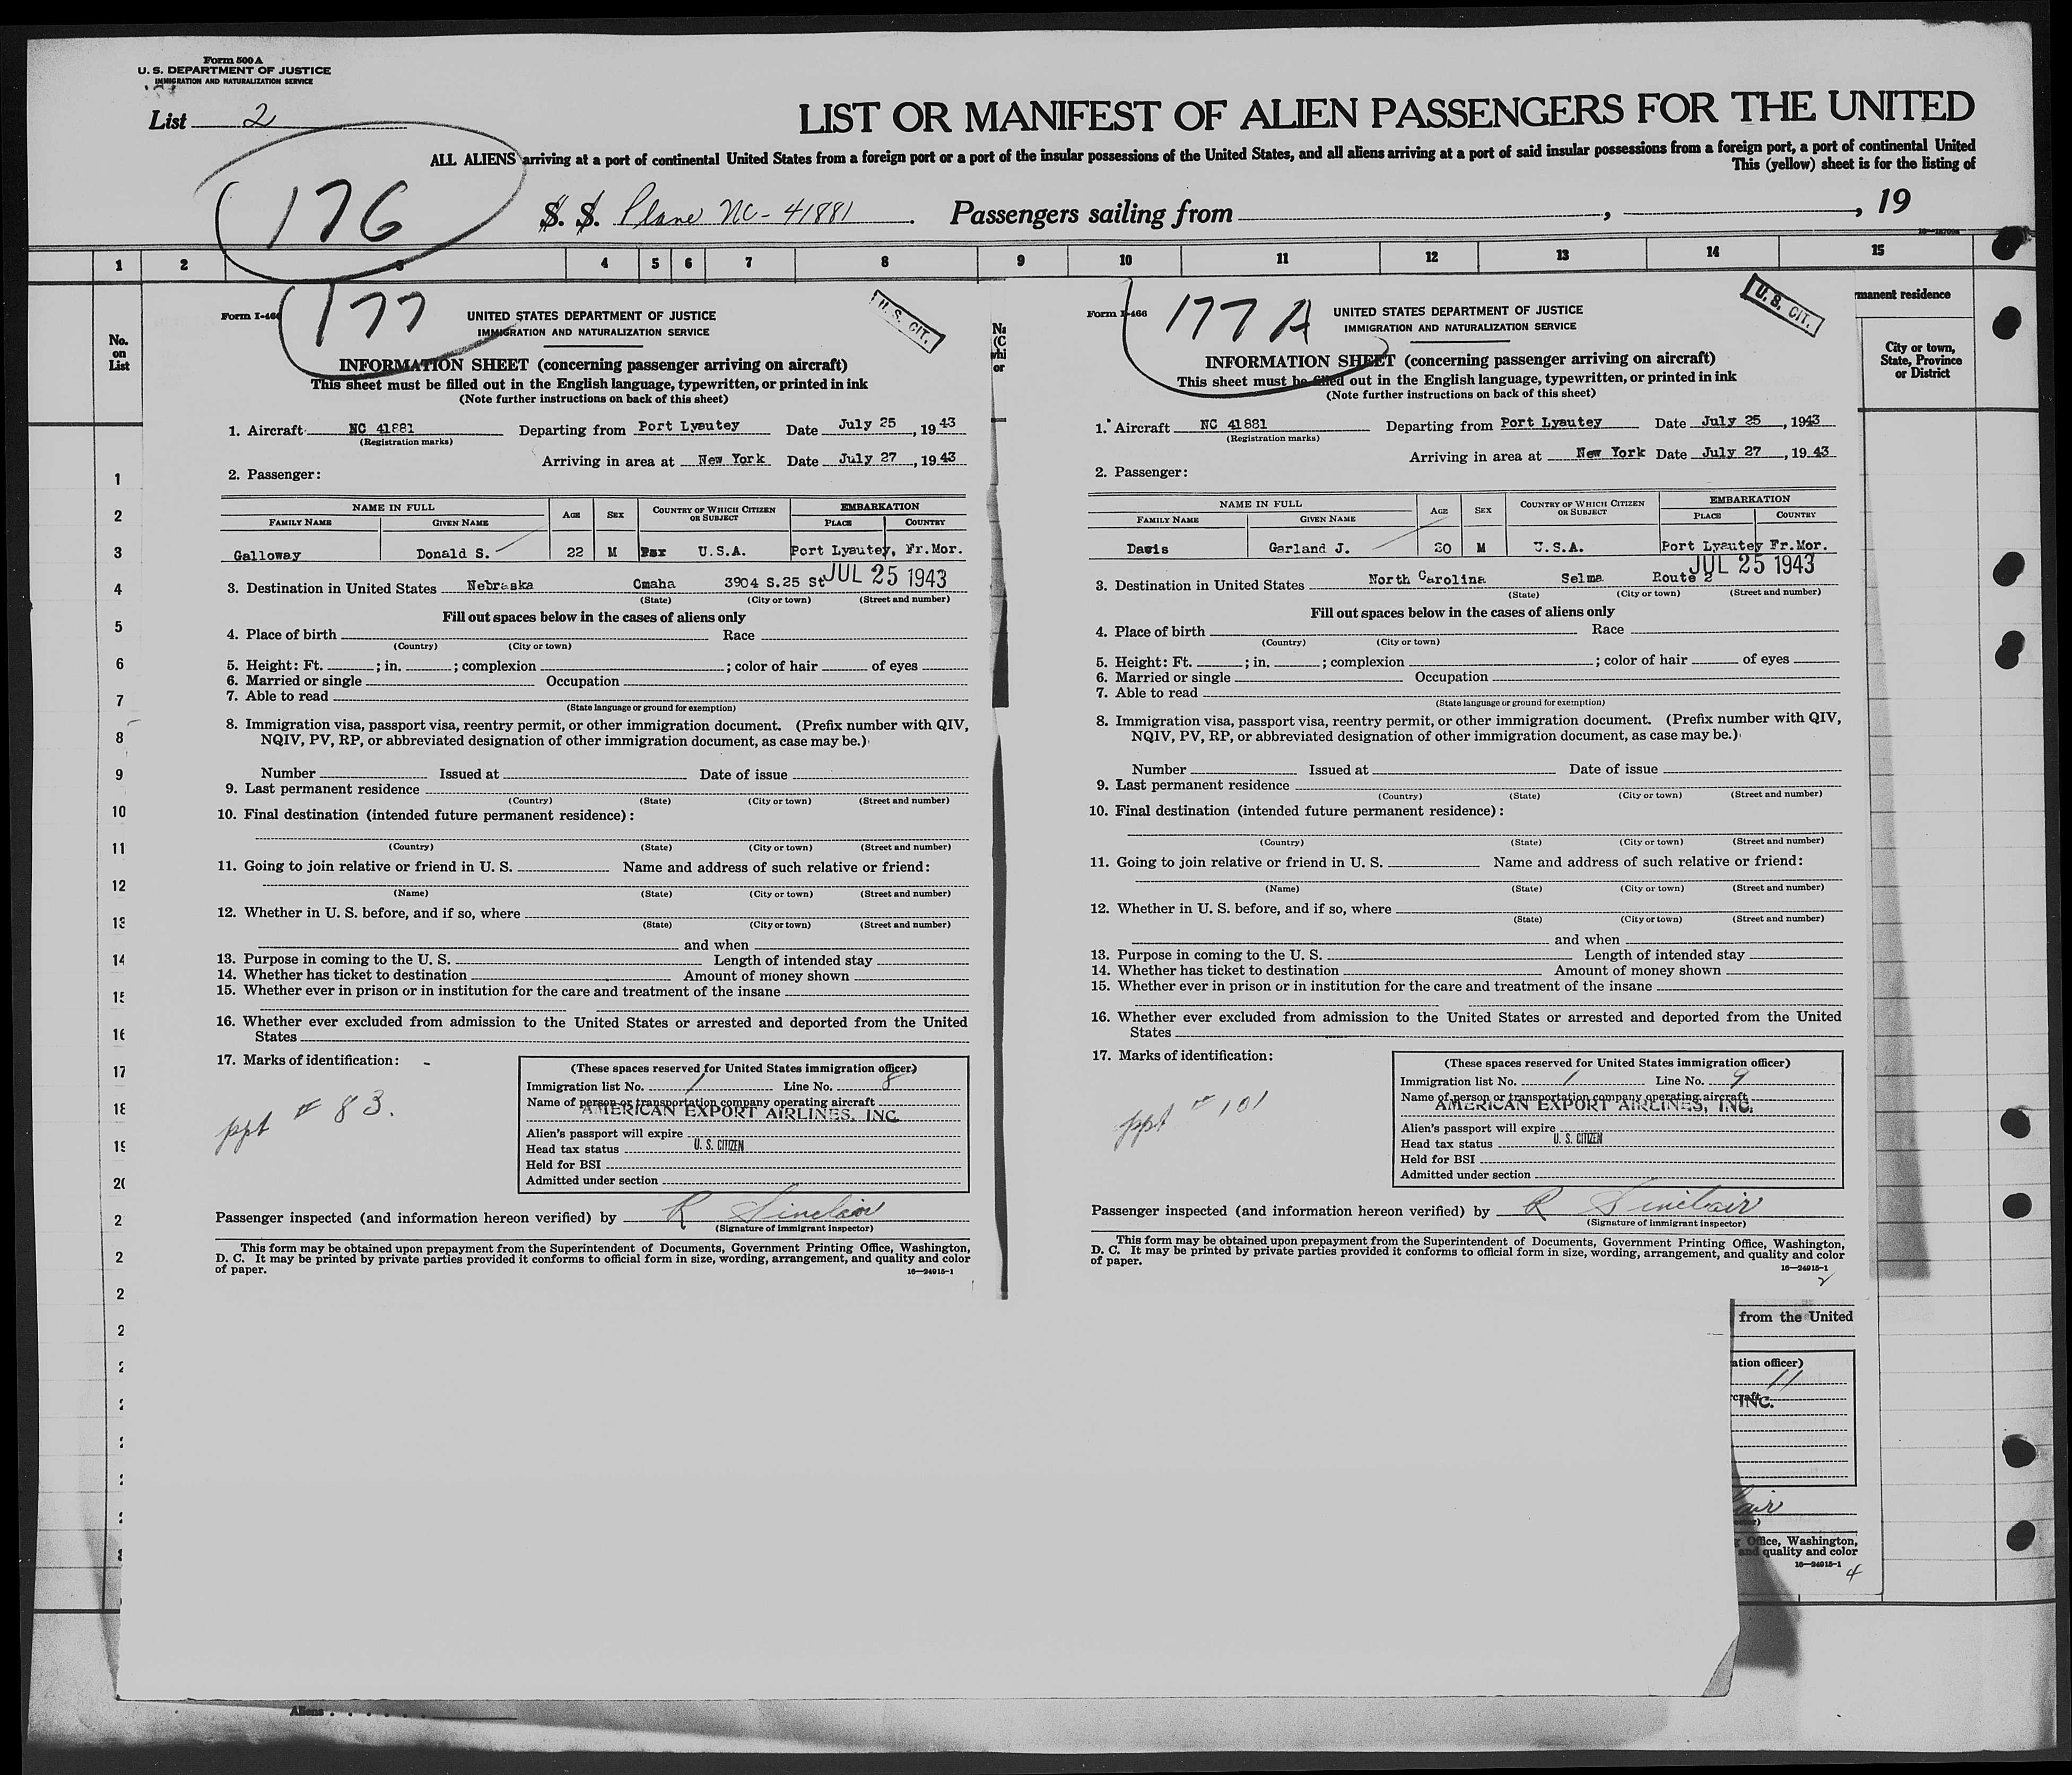 Form 500 A
U. S. DEPARTMENT OF JUSTICE
IMMIGRATION AND NATURALIZATION SERVICE
List 2
LIST OR MANIFEST OF ALIEN PASSENGERS FOR THE UNITED
ALL ALIENS arriving at a port of continental United States from a foreign port or a port of the insular possessions of the United States, and all aliens arriving at a port of said insular possessions from a foreign port, a port of continental United
This (yellow) sheet is for the listing of
176
S. S. Plane NC-41881. Passengers sailing from , , 19
1 2 3 4 5 6 7 8 9 10 11 12 13 14 15
No. on List
manent residence
City or town, State, Province or District
1
2
3
4
5
6
7
8
9
10
11
12
13
14
15
16
17
18
19
20
Form I-466
177
U. S. CIT.
UNITED STATES DEPARTMENT OF JUSTICE
IMMIGRATION AND NATURALIZATION SERVICE
INFORMATION SHEET (concerning passenger arriving on aircraft)
This sheet must be filled out in the English language, typewritten, or printed in ink
(Note further instructions on back of this sheet)
1. Aircraft NC 41881 Departing from Port Lyautey Date July 25, 1943
(Registration marks)
Arriving in area at New York Date July 27, 1943
2. Passenger:
NAME IN FULL AGE SEX COUNTRY OF WHICH CITIZEN OR SUBJECT EMBARKATION
FAMILY NAME GIVEN NAME PLACE COUNTRY
Galloway Donald S. 22 M U.S.A. Port Lyautey, Fr.Mor.
JUL 25 1943
3. Destination in United States Nebraska Omaha 3904 S.25 St
(State) (City or town) (Street and number)
Fill out spaces below in the cases of aliens only
4. Place of birth Race
(Country) (City or town)
5. Height: Ft. ; in. ; complexion ; color of hair of eyes
6. Married or single Occupation
7. Able to read
(State language or ground for exemption)
8. Immigration visa, passport visa, reentry permit, or other immigration document. (Prefix number with QIV,
NQIV, PV, RP, or abbreviated designation of other immigration document, as case may be.)
Number Issued at Date of issue
9. Last permanent residence
(Country) (State) (City or town) (Street and number)
10. Final destination (intended future permanent residence):
(Country) (State) (City or town) (Street and number)
11. Going to join relative or friend in U. S. Name and address of such relative or friend:
(Name) (State) (City or town) (Street and number)
12. Whether in U. S. before, and if so, where
(State) (City or town) (Street and number)
and when
13. Purpose in coming to the U. S. Length of intended stay
14. Whether has ticket to destination Amount of money shown
15. Whether ever in prison or in institution for the care and treatment of the insane
16. Whether ever excluded from admission to the United States or arrested and deported from the United
States
17. Marks of identification: -
ppt # 83.
(These spaces reserved for United States immigration officer)
Immigration list No. 1 Line No. 8
Name of person or transportation company operating aircraft
AMERICAN EXPORT AIRLINES, INC.
Alien's passport will expire
Head tax status U. S. CITIZEN
Held for BSI
Admitted under section
Passenger inspected (and information hereon verified) by R Sinclair
(Signature of immigrant inspector)
This form may be obtained upon prepayment from the Superintendent of Documents, Government Printing Office, Washington,
D. C. It may be printed by private parties provided it conforms to official form in size, wording, arrangement, and quality and color
of paper.
16—24915-1
Form I-466
177 A
U. S. CIT.
UNITED STATES DEPARTMENT OF JUSTICE
IMMIGRATION AND NATURALIZATION SERVICE
INFORMATION SHEET (concerning passenger arriving on aircraft)
This sheet must be filled out in the English language, typewritten, or printed in ink
(Note further instructions on back of this sheet)
1. Aircraft NC 41881 Departing from Port Lyautey Date July 25, 1943
(Registration marks)
Arriving in area at New York Date July 27, 1943
2. Passenger:
NAME IN FULL AGE SEX COUNTRY OF WHICH CITIZEN OR SUBJECT EMBARKATION
FAMILY NAME GIVEN NAME PLACE COUNTRY
Davis Garland J. 20 M U.S.A. Port Lyautey Fr.Mor.
JUL 25 1943
3. Destination in United States North Carolina Selma Route 2
(State) (City or town) (Street and number)
Fill out spaces below in the cases of aliens only
4. Place of birth Race
(Country) (City or town)
5. Height: Ft. ; in. ; complexion ; color of hair of eyes
6. Married or single Occupation
7. Able to read
(State language or ground for exemption)
8. Immigration visa, passport visa, reentry permit, or other immigration document. (Prefix number with QIV,
NQIV, PV, RP, or abbreviated designation of other immigration document, as case may be.)
Number Issued at Date of issue
9. Last permanent residence
(Country) (State) (City or town) (Street and number)
10. Final destination (intended future permanent residence):
(Country) (State) (City or town) (Street and number)
11. Going to join relative or friend in U. S. Name and address of such relative or friend:
(Name) (State) (City or town) (Street and number)
12. Whether in U. S. before, and if so, where
(State) (City or town) (Street and number)
and when
13. Purpose in coming to the U. S. Length of intended stay
14. Whether has ticket to destination Amount of money shown
15. Whether ever in prison or in institution for the care and treatment of the insane
16. Whether ever excluded from admission to the United States or arrested and deported from the United
States
17. Marks of identification:
ppt # 101
(These spaces reserved for United States immigration officer)
Immigration list No. 1 Line No. 9
Name of person or transportation company operating aircraft
AMERICAN EXPORT AIRLINES, INC.
Alien's passport will expire
Head tax status U. S. CITIZEN
Held for BSI
Admitted under section
Passenger inspected (and information hereon verified) by R Sinclair
(Signature of immigrant inspector)
This form may be obtained upon prepayment from the Superintendent of Documents, Government Printing Office, Washington,
D. C. It may be printed by private parties provided it conforms to official form in size, wording, arrangement, and quality and color
of paper.
16—24915-1
2
from the United
ation officer)
11
INC.
lair
Office, Washington,
and quality and color
16—24915-1
4
Aliens